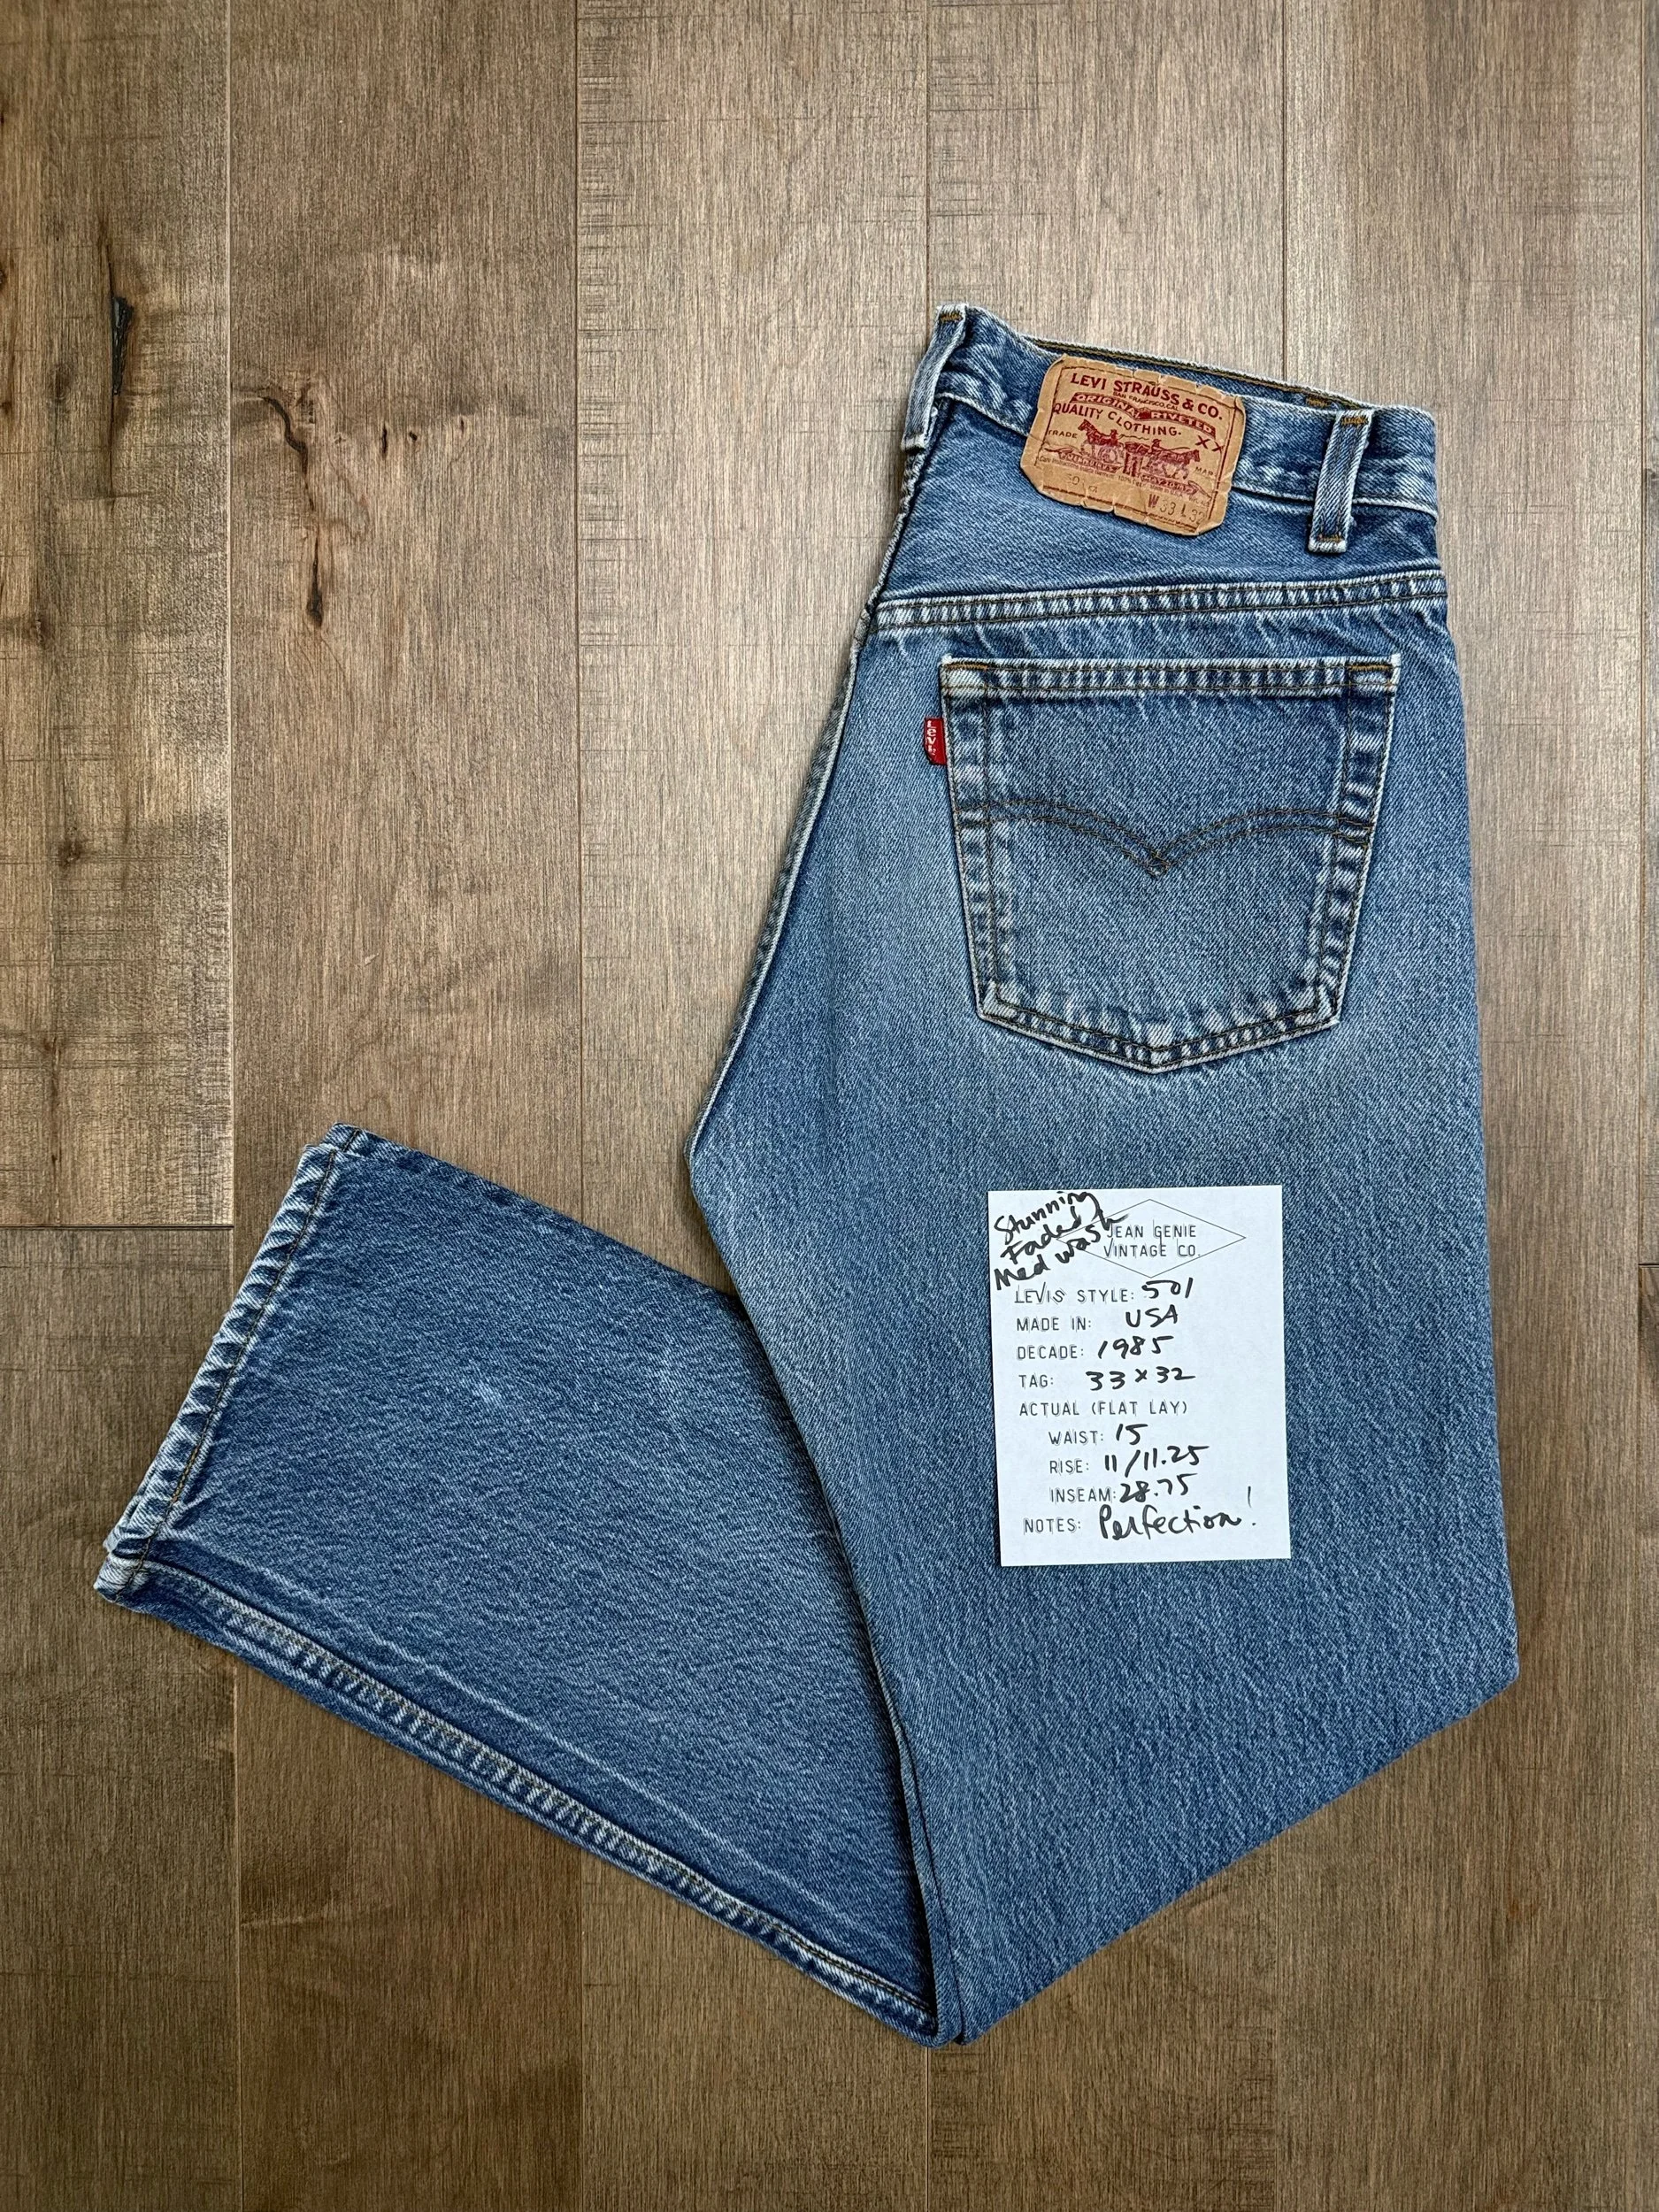 LEVI STRAUSS & CO.
SAN FRANCISCO, CAL.
ORIGINAL RIVETED
QUALITY CLOTHING.
TRADE MARK
XX
W 33 L 32
Levi's
Stunning
Faded
Med Wash
JEAN GENIE
VINTAGE CO.
LEVIS STYLE: 501
MADE IN: USA
DECADE: 1985
TAG: 33 x 32
ACTUAL (FLAT LAY)
WAIST: 15
RISE: 11/11.25
INSEAM: 28.75
NOTES: Perfection!